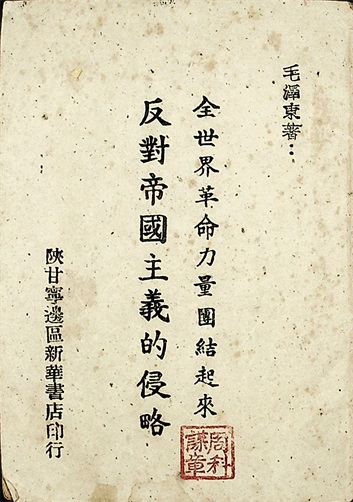 毛澤東著：
全世界革命力量團結起來
反對帝國主義的侵略
陝甘寧邊區新華書店印行
周科謙章